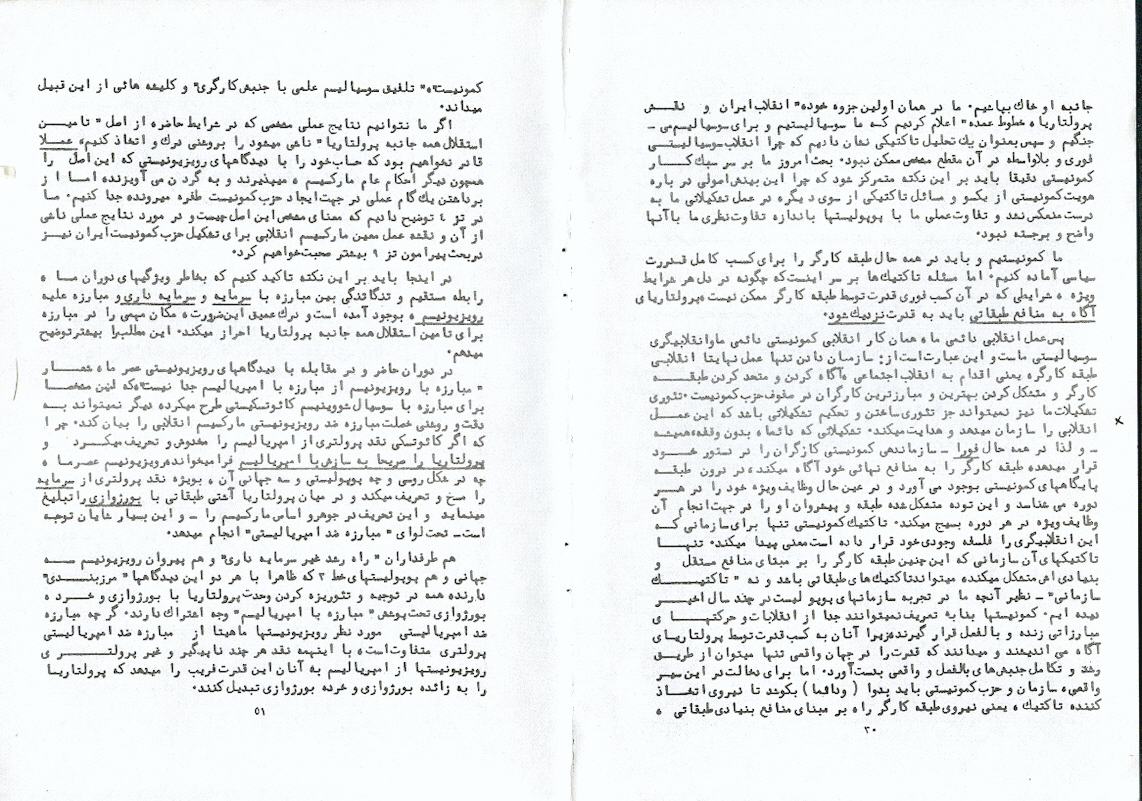 جانبه او خاك بپاشیم. ما در همان اولین جزوه خود، "انقلاب ایران و نقش
پرولتاریا، خطوط عمده" اعلام کردیم که ما سوسیالیستیم و برای سوسیالیسم می‌ـ
جنگیم و سپس بعنوان یك تحلیل تاکتیکی نشان دادیم که چرا انقلاب سوسیالیستی
فوری و بلاواسطه در آن مقطع مشخص ممکن نبود. بحث امروز ما بر سر سبك کار
کمونیستی دقیقا باید بر این نکته متمرکز شود که چرا این بینش اصولی در باره
هویت کمونیستی از یکسو و مسائل تاکتیکی از سوی دیگر، در عمل تشکیلاتی ما به
درست منعکس نشد و تفاوت عملی ما با پوپولیستها باندازه تفاوت نظری ما با آنها
واضح و برجسته نبود.
ما کمونیستیم و باید در همه حال طبقه کارگر را برای کسب کامل قدرت
سیاسی آماده کنیم. اما مسئله تاکتیك‌ها بر سر اینست که چگونه در دل هر شرایط
ویژه ، شرایطی که در آن کسب فوری قدرت توسط طبقه کارگر ممکن نیست، پرولتاریای
آگاه به منافع طبقاتی باید به قدرت نزدیك شود.
پس عمل انقلابی دائمی ما، همان کار انقلابی کمونیستی دائمی ما و انقلابیگری
سوسیالیستی ماست و این عبارت است از: سازمان دادن تنها عمل نهایتا انقلابی
طبقه کارگر، یعنی اقدام به انقلاب اجتماعی ،آگاه کردن و متحد کردن طبقه
کارگر و متشکل کردن بهترین و مبارزترین کارگران در صفوف حزب کمونیست. تئوری
تشکیلات ما نیز نمیتواند جز تئوری ساختن و تحکیم تشکیلاتی باشد که این عمل
انقلابی را سازمان میدهد و هدایت میکند. تشکیلاتی که دائما، بدون وقفه، همیشه
ـ و لذا در همه حال فورا ـ سازماندهی کمونیستی کارگران را در دستور خود
قرار میدهد، طبقه کارگر را به منافع نهائی خود آگاه میکند، در درون طبقه
پایگاههای کمونیستی بوجود می آورد و در عین حال وظایف ویژه خود را در هر
دوره می شناسد و این توده متشکل شده طبقه و پیشروان او را در جهت انجام آن
وظایف ویژه در هر دوره بسیج میکند. تاکتیك کمونیستی تنها برای سازمانی که
این انقلابیگری را فلسفه وجودی خود قرار داده است معنی پیدا میکند. تنها
تاکتیکهای آن سازمانی که این چنین طبقه کارگر را بر مبنای منافع مستقل و
بنیادی اش متشکل میکند، میتواند تاکتیك های طبقاتی باشد و نه "تاکتیك
سازمانی" ـ نظیر آنچه ما در تجربه سازمانهای پوپولیست در چند سال اخیر
دیده ایم. کمونیستها بنا به تعریف نمیتوانند جدا از انقلابات و حرکتهای
مبارزاتی زنده و بالفعل قرار گیرند، زیرا آنان به کسب قدرت توسط پرولتاریای
آگاه می اندیشند و میدانند که قدرت را در جهان واقعی تنها میتوان از طریق
رشد و تکامل جنبش‌های بالفعل و واقعی بدست آورد. اما برای دخالت در این سیر
واقعی، سازمان و حزب کمونیستی باید بدوا ( و دائما ) بکوشد تا نیروی اتخاذ
کننده تاکتیك ، یعنی نیروی طبقه کارگر را، بر مبنای منافع بنیادی طبقاتی ،
۳۰
کمونیست"، "تلفیق سوسیالیسم علمی با جنبش کارگری" و کلیشه هائی از این قبیل
میداند.
اگر ما نتوانیم نتایج عملی مشخصی که در شرایط حاضر، از اصل "تامین
استقلال همه جانبه پرولتاریا" ناشی میشود را بروشنی درك و اتخاذ کنیم، عملا
قادر نخواهیم بود که حساب خود را با دیدگاههای رویزیونیستی که این اصل را
همچون دیگر احکام عام مارکسیسم ، میپذیرند و به گردن می آویزند، اما از
برداشتن یك گام عملی در جهت ایجاد حزب کمونیست طفره میروند، جدا کنیم. ما
در تز ٤ توضیح دادیم که معنای مشخص این اصل چیست و در مورد نتایج عملی ناشی
از آن و نقشه عمل معین مارکسیسم انقلابی برای تشکیل حزب کمونیست ایران نیز
در بحث پیرامون تز ۹ بیشتر صحبت خواهیم کرد.
در اینجا باید بر این نکته تاکید کنیم که بخاطر ویژگیهای دوران ما ،
رابطه مستقیم و تنگاتنگی بین مبارزه با سرمایه و سرمایه داری و مبارزه علیه
رویزیونیسم ، بوجود آمده است و درك عمیق این ضرورت ، مکان مهمی را در مبارزه
برای تامین استقلال همه جانبه پرولتاریا احراز میکند. این مطلب را بیشتر توضیح
میدهم.
در دوران حاضر و در مقابله با دیدگاههای رویزیونیستی عصر ما، شعار
"مبارزه با رویزیونیسم از مبارزه با امپریالیسم جدا نیست"، که لنین مشخصا
برای مبارزه با سوسیال شووینیسم کائوتسکیستی طرح میکرد، دیگر نمیتواند به
دقت و روشنی خصلت مبارزه ضد رویزیونیستی مارکسیسم انقلابی را بیان کند. چرا
که اگر کائوتسکی نقد پرولتری از امپریالیسم را مخدوش و تحریف میکرد و
پرولتاریا را صریحا به سازش با امپریالیسم فرا میخواند، رویزیونیسم عصر ما ،
چه در شکل روسی و چه پوپولیستی و سه جهانی آن ، بویژه نقد پرولتری از سرمایه
را مسخ و تحریف میکند و در میان پرولتاریا آشتی طبقاتی با بورژوازی را تبلیغ
مینماید و این تحریف در جوهر و اساس مارکسیسم را ـ و این بسیار شایان توجه
است ـ تحت لوای "مبارزه ضد امپریالیستی" انجام میدهد.
هم طرفداران "راه رشد غیر سرمایه داری" و هم پیروان رویزیونیسم سه
جهانی و هم پوپولیستهای خط ۳ که ظاهرا با هر دو این دیدگاهها "مرزبندی"
دارند، همه در توجیه و تئوریزه کردن وحدت پرولتاریا با بورژوازی و خرده
بورژوازی تحت پوشش "مبارزه با امپریالیسم" وجه اشتراك دارند. گر چه مبارزه
ضد امپریالیستی مورد نظر رویزیونیستها ماهیتا از مبارزه ضد امپریالیستی
پرولتری متفاوت است، با اینهمه نقد هر چند ناپیگیر و غیر پرولتری
رویزیونیستها از امپریالیسم به آنان این قدرت فریب را میدهد که پرولتاریا
را به زائده بورژوازی و خرده بورژوازی تبدیل کنند.
٥١